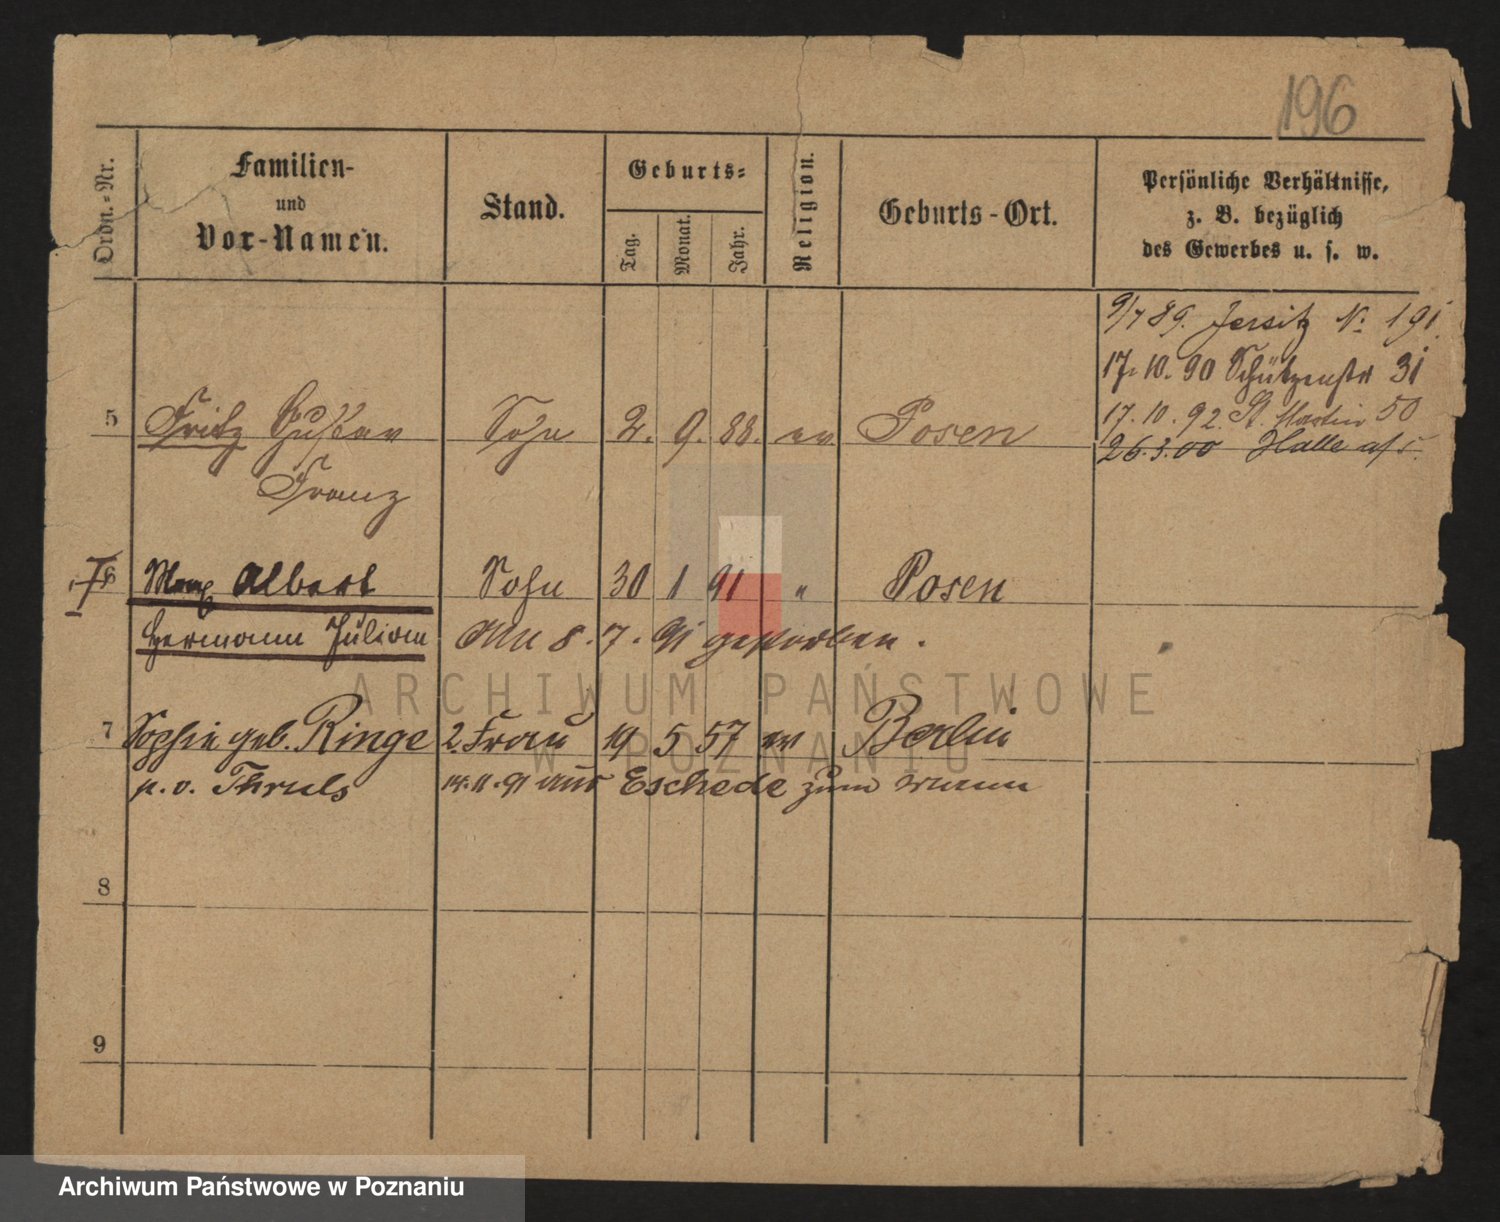 196
Ordn.-Nr.
Familien-
und
Vor-Namen.
Stand.
Geburts-
Tag.
Monat.
Jahr.
Religion.
Geburts-Ort.
Persönliche Verhältnisse,
z. B. bezüglich
des Gewerbes u. s. w.
9/7 89. Jersitz No. 191.
17.10.90 Schützenstr 31
17.10.92. St. Martin 50
26.3.00 Halle a/S.
5 Fritz Gustav Sohn 2. 9. 88. ev Posen
Franz
6 Max Albert Sohn 30 1 91 " Posen
Hermann Julian Am 8. 7. 91 gestorben.
7 Sophie geb. Ringe 2. Frau 19 5 57 ev Berlin
p. v. 14.11.91 aus Eschede zum
8
9
ARCHIWUM PAŃSTWOWE
W POZNANIU
Archiwum Państwowe w Poznaniu